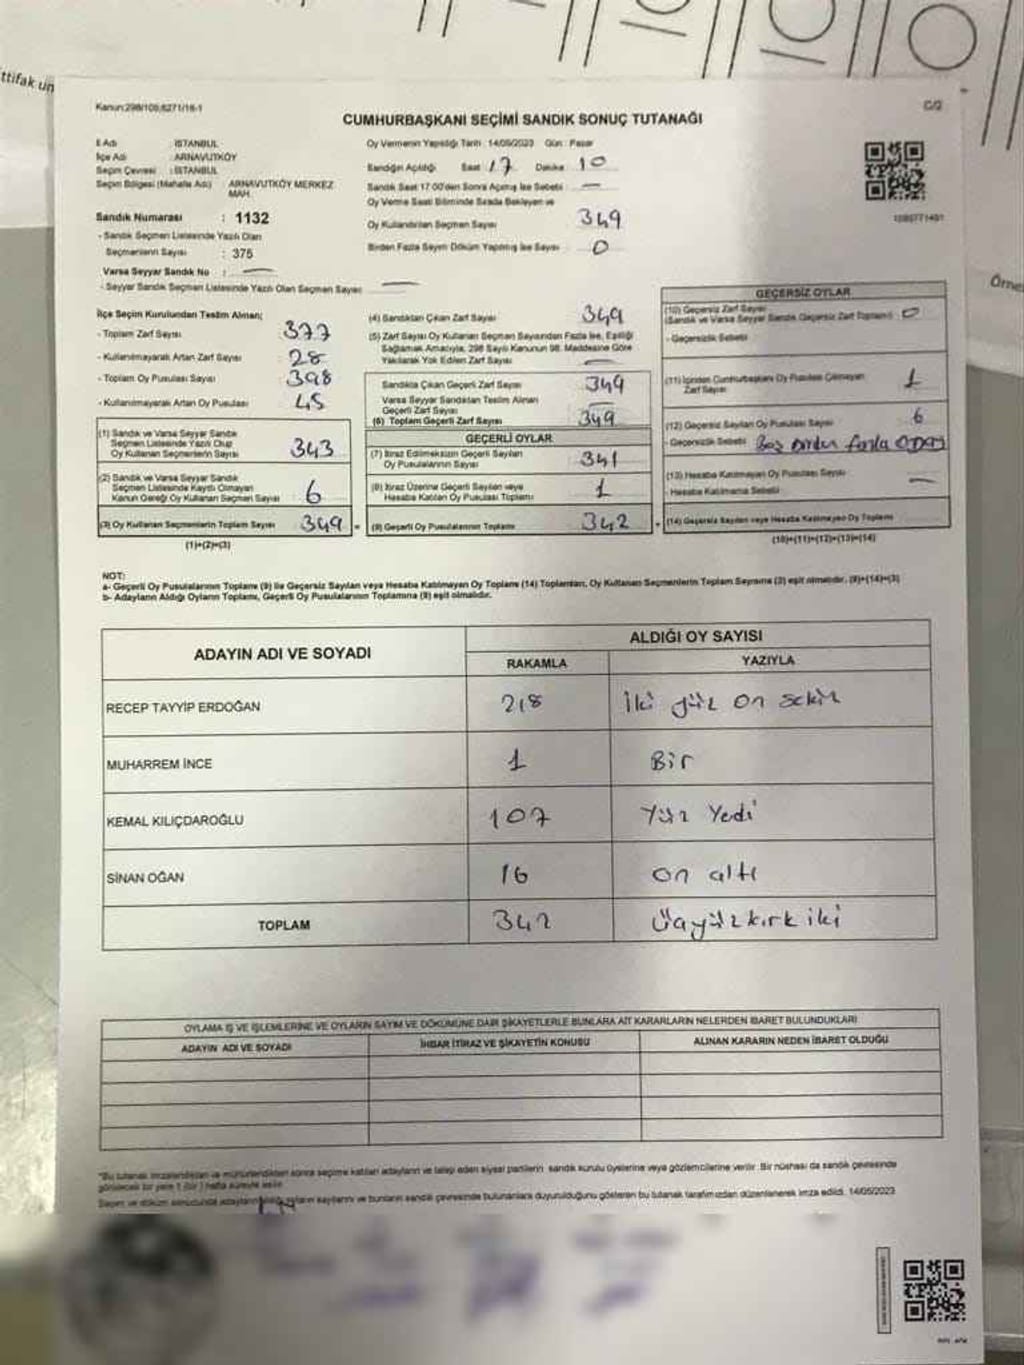 ttifak un
Kanun:298/105;6271/16-1
C/2
CUMHURBAŞKANI SEÇİMİ SANDIK SONUÇ TUTANAĞI
İl Adı : İSTANBUL
İlçe Adı : ARNAVUTKÖY
Seçim Çevresi : İSTANBUL
Seçim Bölgesi (Mahalle Adı) : ARNAVUTKÖY MERKEZ MAH.
Sandık Numarası : 1132
- Sandık Seçmen Listesinde Yazılı Olan
Seçmenlerin Sayısı : 375
Varsa Seyyar Sandık No : —
- Seyyar Sandık Seçmen Listesinde Yazılı Olan Seçmen Sayısı —
Oy Vermenin Yapıldığı Tarih : 14/05/2023 Gün : Pazar
Sandığın Açıldığı Saat 17 Dakika 10
Sandık Saat 17.00'den Sonra Açılmış İse Sebebi —
Oy Verme Saati Bitiminde Sırada Bekleyen ve
Oy Kullandırılan Seçmen Sayısı 349
Birden Fazla Sayım Döküm Yapılmış İse Sayısı 0
Örne
İlçe Seçim Kurulundan Teslim Alınan;
- Toplam Zarf Sayısı 377
- Kullanılmayarak Artan Zarf Sayısı 28
- Toplam Oy Pusulası Sayısı 398
- Kullanılmayarak Artan Oy Pusulası 45
(1) Sandık ve Varsa Seyyar Sandık
Seçmen Listesinde Yazılı Olup
Oy Kullanan Seçmenlerin Sayısı 343
(2) Sandık ve Varsa Seyyar Sandık
Seçmen Listesinde Kayıtlı Olmayan
Kanun Gereği Oy Kullanan Seçmen Sayısı 6
(3) Oy Kullanan Seçmenlerin Toplam Sayısı 349
(1)+(2)=(3)
(4) Sandıktan Çıkan Zarf Sayısı 349
(5) Zarf Sayısı Oy Kullanan Seçmen Sayısından Fazla İse, Eşitliği
Sağlamak Amacıyla, 298 Sayılı Kanunun 98. Maddesine Göre
Yakılarak Yok Edilen Zarf Sayısı —
Sandıkta Çıkan Geçerli Zarf Sayısı 349
Varsa Seyyar Sandıktan Teslim Alınan
Geçerli Zarf Sayısı —
(6) Toplam Geçerli Zarf Sayısı 349
GEÇERLİ OYLAR
(7) İtiraz Edilmeksizin Geçerli Sayılan
Oy Pusulalarının Sayısı 341
(8) İtiraz Üzerine Geçerli Sayılan veya
Hesaba Katılan Oy Pusulası Toplamı 1
(9) Geçerli Oy Pusulalarının Toplamı 342
GEÇERSİZ OYLAR
(10) Geçersiz Zarf Sayısı
(Sandık ve Varsa Seyyar Sandık Geçersiz Zarf Toplamı) 0
- Geçersizlik Sebebi
(11) İçinden Cumhurbaşkanı Oy Pusulası Çıkmayan
Zarf Sayısı 1
(12) Geçersiz Sayılan Oy Pusulası Sayısı 6
- Geçersizlik Sebebi Boş birden fazla
(13) Hesaba Katılmayan Oy Pusulası Sayısı —
- Hesaba Katılmama Sebebi
(14) Geçersiz Sayılan veya Hesaba Katılmayan Oy Toplamı
(10)+(11)+(12)+(13)=(14)
NOT:
a- Geçerli Oy Pusulalarının Toplamı (9) ile Geçersiz Sayılan veya Hesaba Katılmayan Oy Toplamı (14) Toplamları, Oy Kullanan Seçmenlerin Toplam Sayısına (3) eşit olmalıdır. (9)+(14)=(3)
b- Adayların Aldığı Oyların Toplamı, Geçerli Oy Pusulalarının Toplamına (9) eşit olmalıdır.
ADAYIN ADI VE SOYADI
ALDIĞI OY SAYISI
RAKAMLA YAZIYLA
RECEP TAYYİP ERDOĞAN 218 İki yüz on sekiz
MUHARREM İNCE 1 Bir
KEMAL KILIÇDAROĞLU 107 Yüz Yedi
SİNAN OĞAN 16 on altı
TOPLAM 342 Üçyüzkırk iki
OYLAMA İŞ VE İŞLEMLERİNE VE OYLARIN SAYIM VE DÖKÜMÜNE DAİR ŞİKAYETLERLE BUNLARA AİT KARARLARIN NELERDEN İBARET BULUNDUKLARI
ADAYIN ADI VE SOYADI İHBAR İTİRAZ VE ŞİKAYETİN KONUSU ALINAN KARARIN NEDEN İBARET OLDUĞU
*Bu tutanak imzalandıktan ve mühürlendikten sonra seçime katılan adayların ve talep eden siyasi partilerin sandık kurulu üyelerine veya gözlemcilerine verilir. Bir nüshası da sandık çevresinde
görülecek bir yere 1 (bir) hafta süreyle asılır.
Seçim ve döküm sonucunda adayların oyların sayılarını ve bunların sandık çevresinde bulunanlara duyurulduğunu gösteren bu tutanak tarafımızdan düzenlenerek imza edildi. 14/05/2023